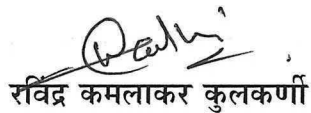 रविंद्र कमलाकर कुलकर्णी